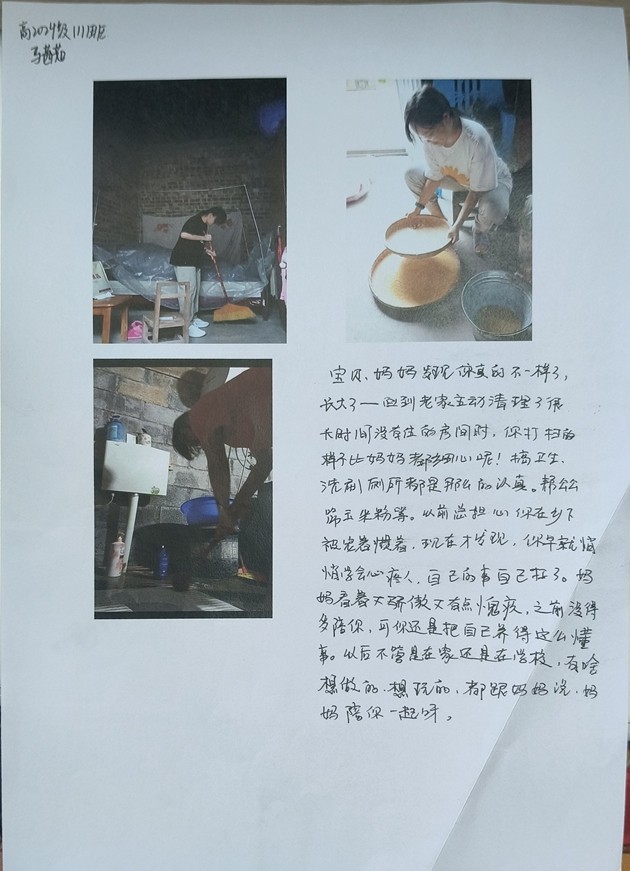 高2024级11班
马
宝贝,妈妈发现你真的不一样了,
长大了——回到老家主动清理了很
长时间没有住的房间时,你打扫的
样子比妈妈都细心呢!搞卫生、
洗刷厕所都是那么的认真。帮公公
筛玉米粉等。以前总担心你在乡下
被宠着惯着,现在才发现,你早就悄
悄学会心疼人,自己的事自己扛了。妈
妈看着又骄傲又有点愧疚,之前没得
多陪你,可你还是把自己养得这么懂
事。以后不管是在家还是在学校,有啥
想做的、想玩的,都跟妈妈说,妈
妈陪你一起呀。